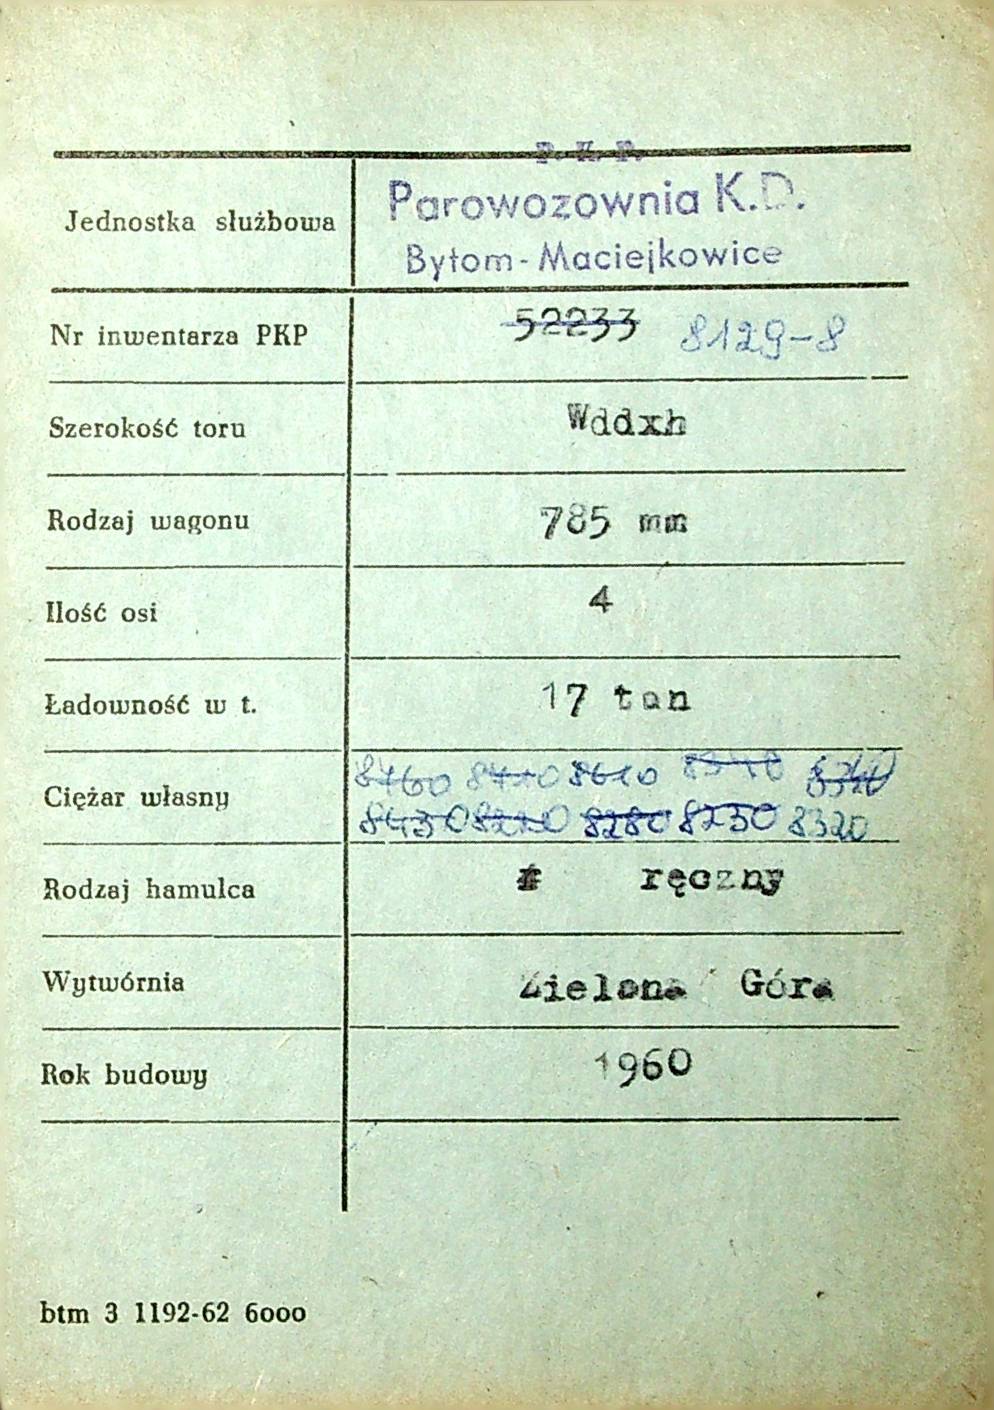 P. K. P.
Jednostka służbowa Parowozownia K.D.
Bytom-Maciejkowice
Nr inwentarza PKP 52233 8129-8
Szerokość toru Wddxh
Rodzaj wagonu 785 mm
Ilość osi 4
Ładowność w t. 17 ton
8460 8610
Ciężar własny
8430 8280 8250 8320
Rodzaj hamulca ręczny
Wytwórnia Zielona Góra
Rok budowy 1960
btm 3 1192-62 6000